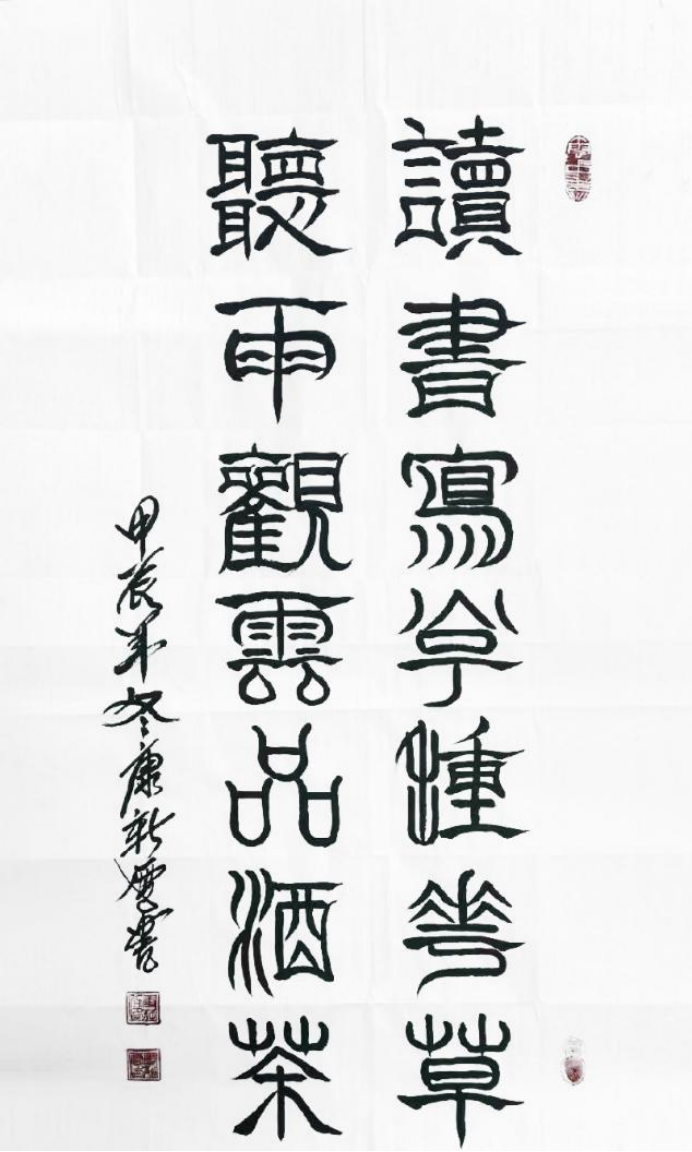 讀書寫字種花草
聽雨觀雲品酒茶
甲辰年冬康新書